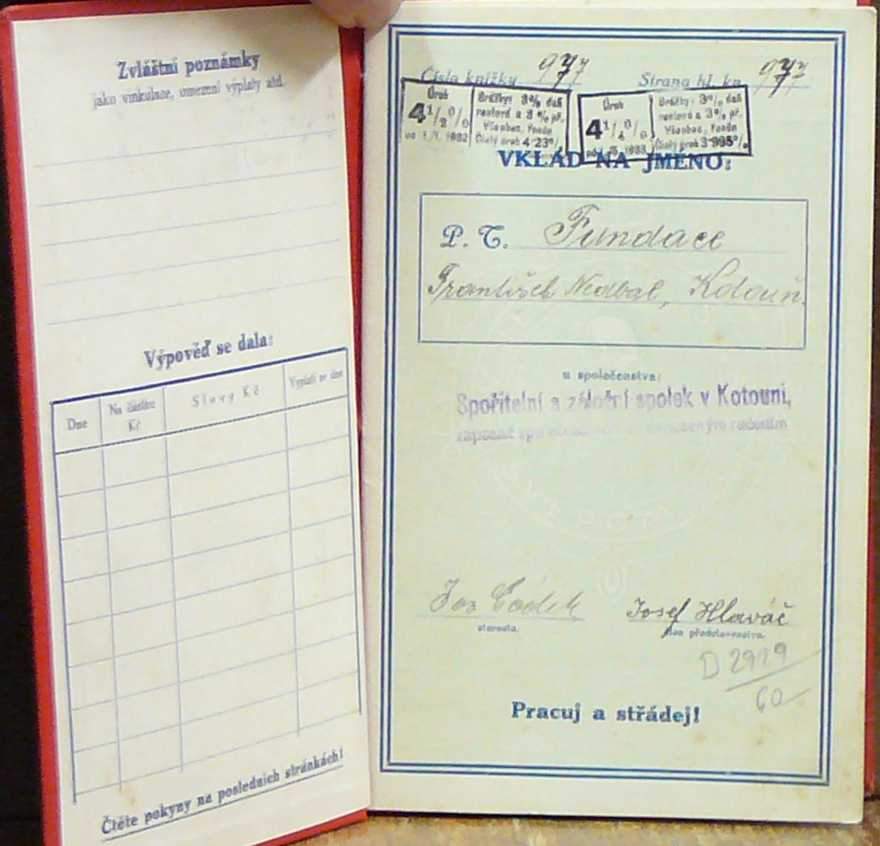 Zvláštní poznámky
jako vinkulace, omezení výplaty atd.
Výpověď se dala:
Dne
Na částku Kč
Slovy Kč
Vyplatí se dne
Čtěte pokyny na posledních stránkách!
Číslo knížky 977
Strana hl. kn. 977
Úrok
4 1/2 %
Srážky: 3% daň
rentová a 3% př.
Všeobec. fondu
Čistý úrok 4·23%
Úrok
4 1/4 %
Srážky: 3% daň
rentová a 3% př.
Všeobec. fondu
Čistý úrok 3·995%
VKLAD NA JMÉNO:
P. T. Fundace
František Nedbal, Kotouň.
u společenstva:
Spořitelní a záložní spolek v Kotouni,
zapsané
starosta.
Josef Hlaváč
člen představenstva.
D 2919
60
Pracuj a střádej!